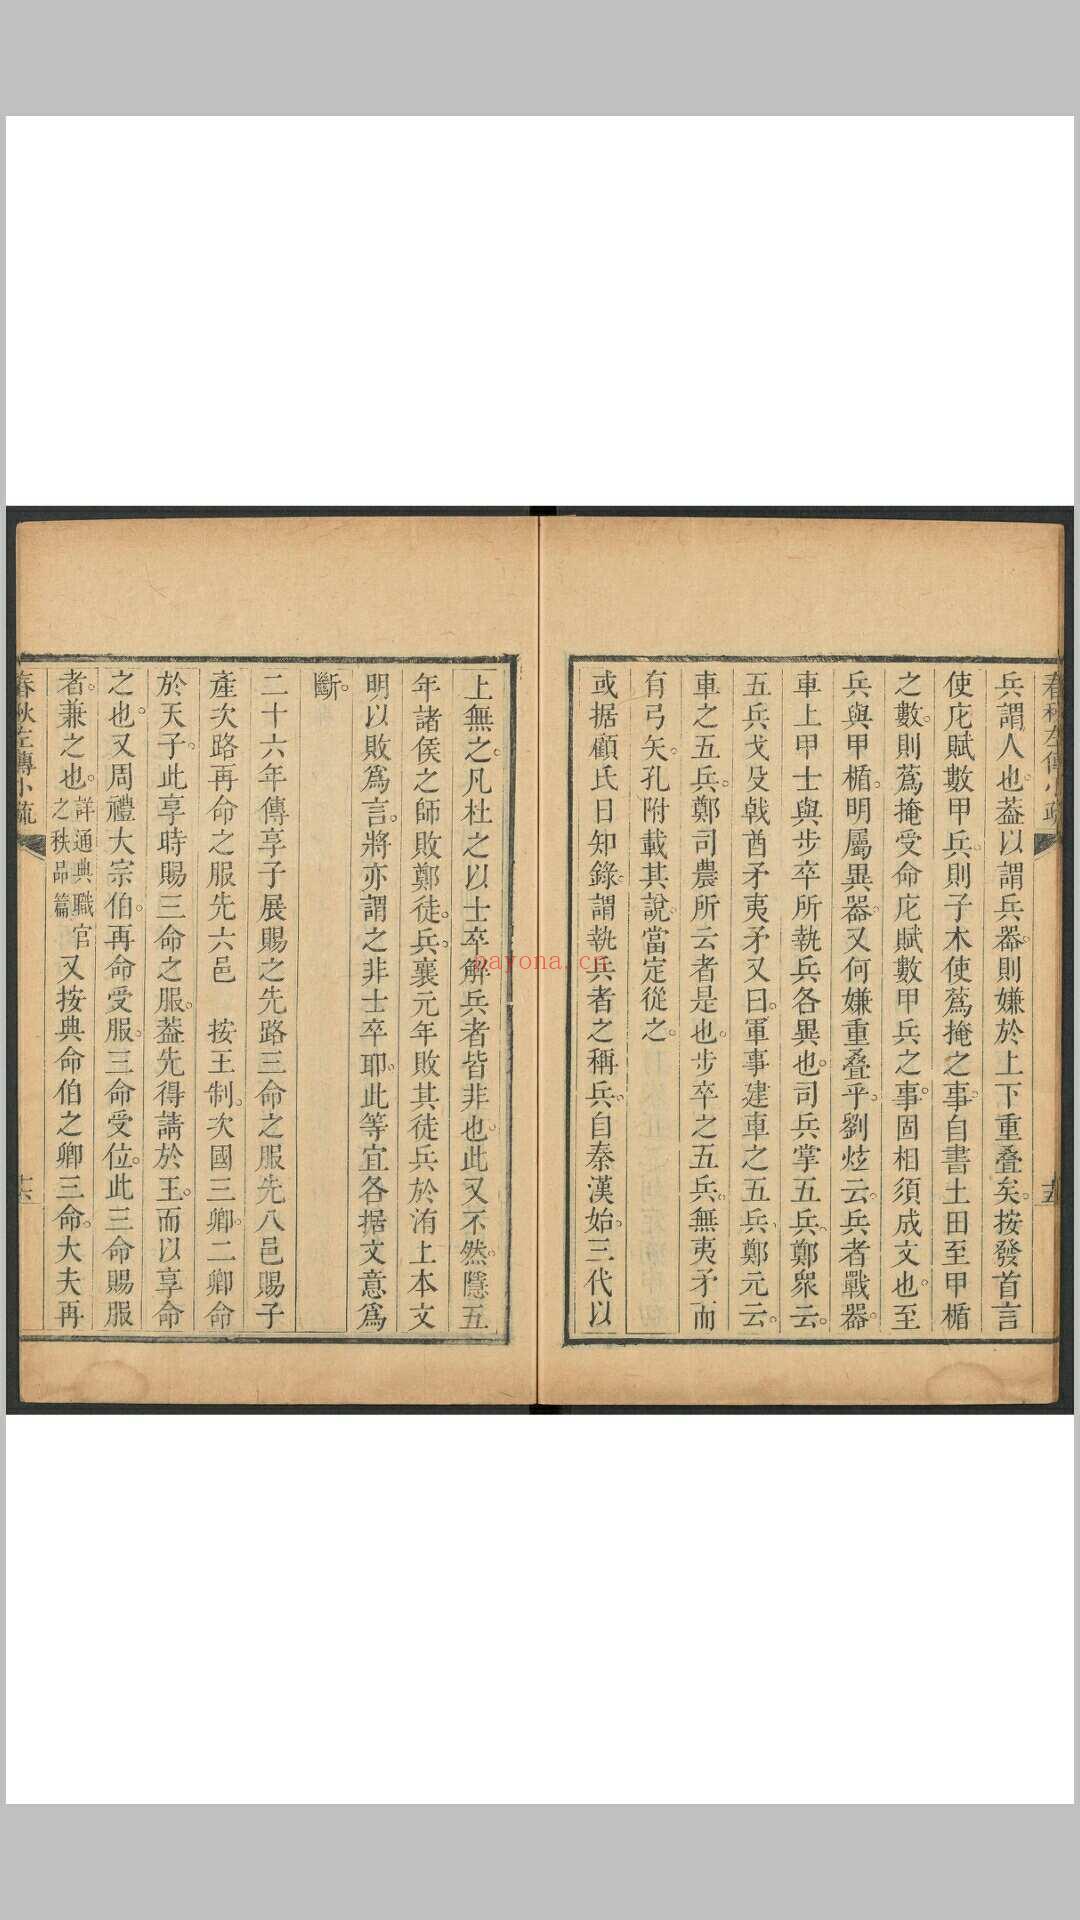 春秋左傳小疏
十五
兵謂人也。葢以謂兵器。則嫌於上下重疊矣。按發首言
使庀賦數甲兵。則子木使蒍掩之事。自書土田至甲楯
之數。則蒍掩受命庀賦數甲兵之事。固相須成文也。至
兵與甲楯。明屬異器。又何嫌重疊乎。劉炫云。兵者戰器。
車上甲士與步卒所執兵各異也。司兵掌五兵。鄭眾云。
五兵戈殳戟酋矛夷矛。又曰。軍事建車之五兵。鄭元云。
車之五兵。鄭司農所云者是也。步卒之五兵。無夷矛而
有弓矢。孔附載其說。當定從之。
或据顧氏日知錄。謂執兵者之稱兵。自秦漢始。三代以
上無之。凡杜之以士卒解兵者皆非也。此又不然。隱五
年諸侯之師敗鄭徒兵。襄元年敗其徒兵於洧上。本文
明以敗爲言。將亦謂之非士卒耶。此等宜各据文意爲
斷。
二十六年傳享子展賜之先路三命之服先八邑賜子
產次路再命之服先六邑　按王制。次國三卿。二卿命
於天子。此享時賜三命之服。葢先得請於王。而以享命
之也。又周禮大宗伯。再命受服。三命受位。此三命賜服
者。兼之也。詳通典職官之秩品篇又按典命伯之卿三命。大夫再
春秋左傳小疏
十六
payona.cn